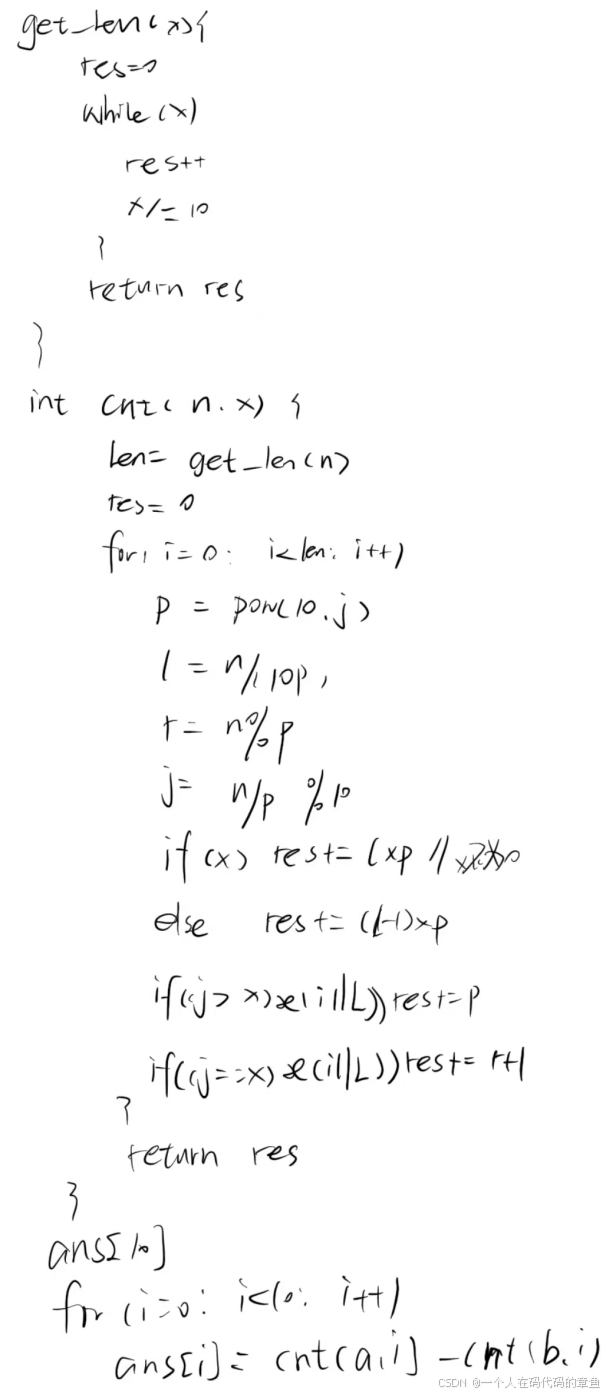 get_len(x){
res=0
while(x)
res++
x/=10
}
return res
}
int cnt(n.x) {
len= get_len(n)
res= 0
for, i=0: i<len: i++)
p = pow(10.j)
l = n/(10p,
r= n%p
j= n/p %10
if(x) res+= lxp //x不为0
else res+= (l-1)xp
if((j> x)&&(i||L))res+=p
if((j==x)&&(i||L))res+= r+1
}
return res
}
ans[10]
for (i=0: i<10: i++)
ans[i]= cnt(a,i] -cnt(b,i)
CSDN @一个人在码代码的章鱼